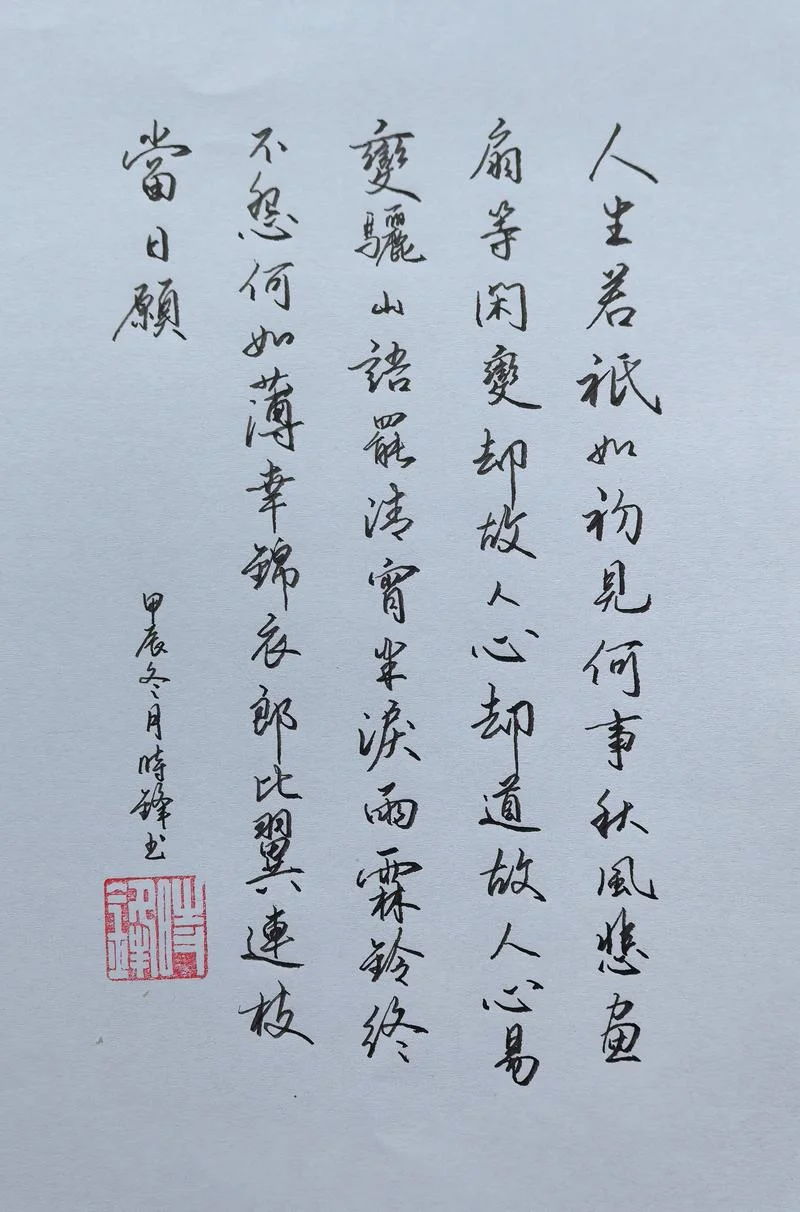 人生若祇如初見何事秋風悲画
扇等闲變却故人心却道故人心易
變驪山語罷清宵半淚雨霖鈴終
不怨何如薄幸錦衣郎比翼連枝
當日願
甲辰冬月時鋒书
時鋒